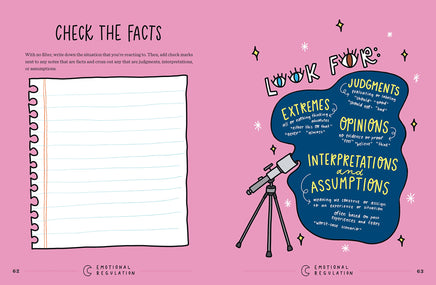 CHECK THE FACTS
With no filter, write down the situation that you're reacting to. Then, add check marks
next to any notes that are facts and cross out any that are judgments, interpretations,
or assumptions.
62
EMOTIONAL
REGULATION
LOOK FOR:
JUDGMENTS
evaluating or labeling
"should" "good"
"should not" "bad"
EXTREMES
all or nothing thinking
absolutes
"either this or that"
"never" "always"
OPINIONS
no evidence or proof
"feel" "believe" "think"
INTERPRETATIONS
and
ASSUMPTIONS
meaning we construe or assign
to an experience or situation
often based on past
experiences and fears
"worst-case scenario"
EMOTIONAL
REGULATION
63